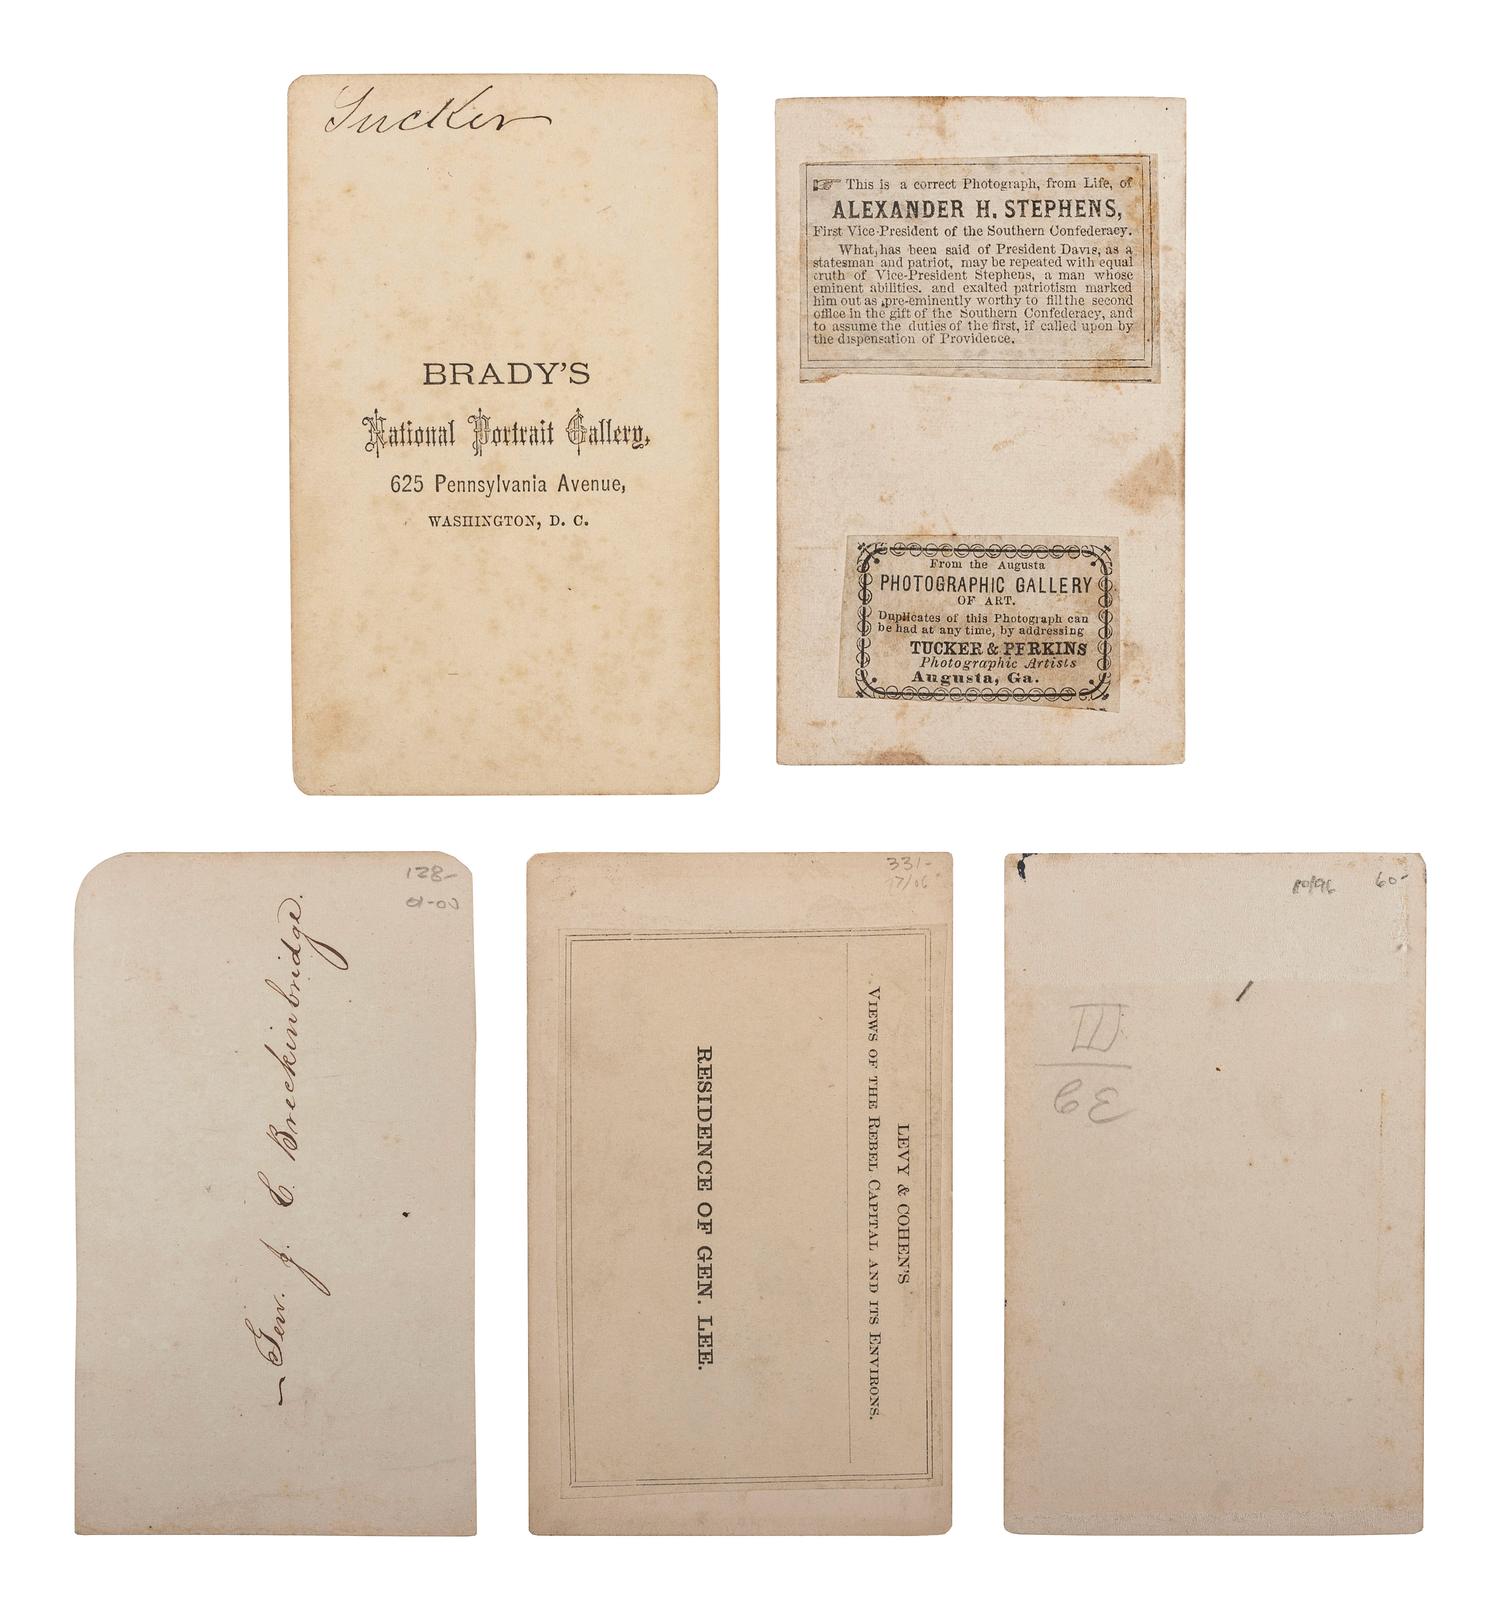 Tucker
BRADY'S
National Portrait Gallery,
625 Pennsylvania Avenue,
WASHINGTON, D. C.
☞ This is a correct Photograph, from Life, of
ALEXANDER H. STEPHENS,
First Vice-President of the Southern Confederacy.
What has been said of President Davis, as a
statesman and patriot, may be repeated with equal
truth of Vice-President Stephens, a man whose
eminent abilities. and exalted patriotism marked
him out as pre-eminently worthy to fill the second
office in the gift of the Southern Confederacy, and
to assume the duties of the first, if called upon by
the dispensation of Providence.
From the Augusta
PHOTOGRAPHIC GALLERY
OF ART.
Duplicates of this Photograph can
be had at any time, by addressing
TUCKER & PERKINS
Photographic Artists
Augusta, Ga.
128-
01-00
Gen. J. C. Breckinbridge.
331-
LEVY & COHEN'S
VIEWS OF THE REBEL CAPITAL AND ITS ENVIRONS.
RESIDENCE OF GEN. LEE.
10/96 60-
III